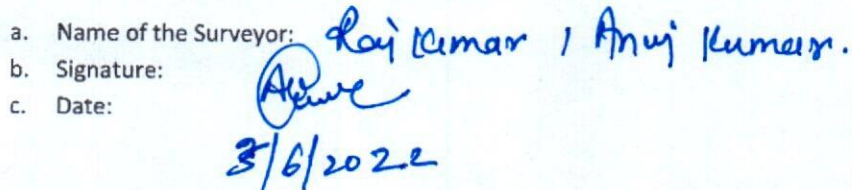 a. Name of the Surveyor: Raj Kumar / Anuj Kumar.
b. Signature:
c. Date: 3/6/2022